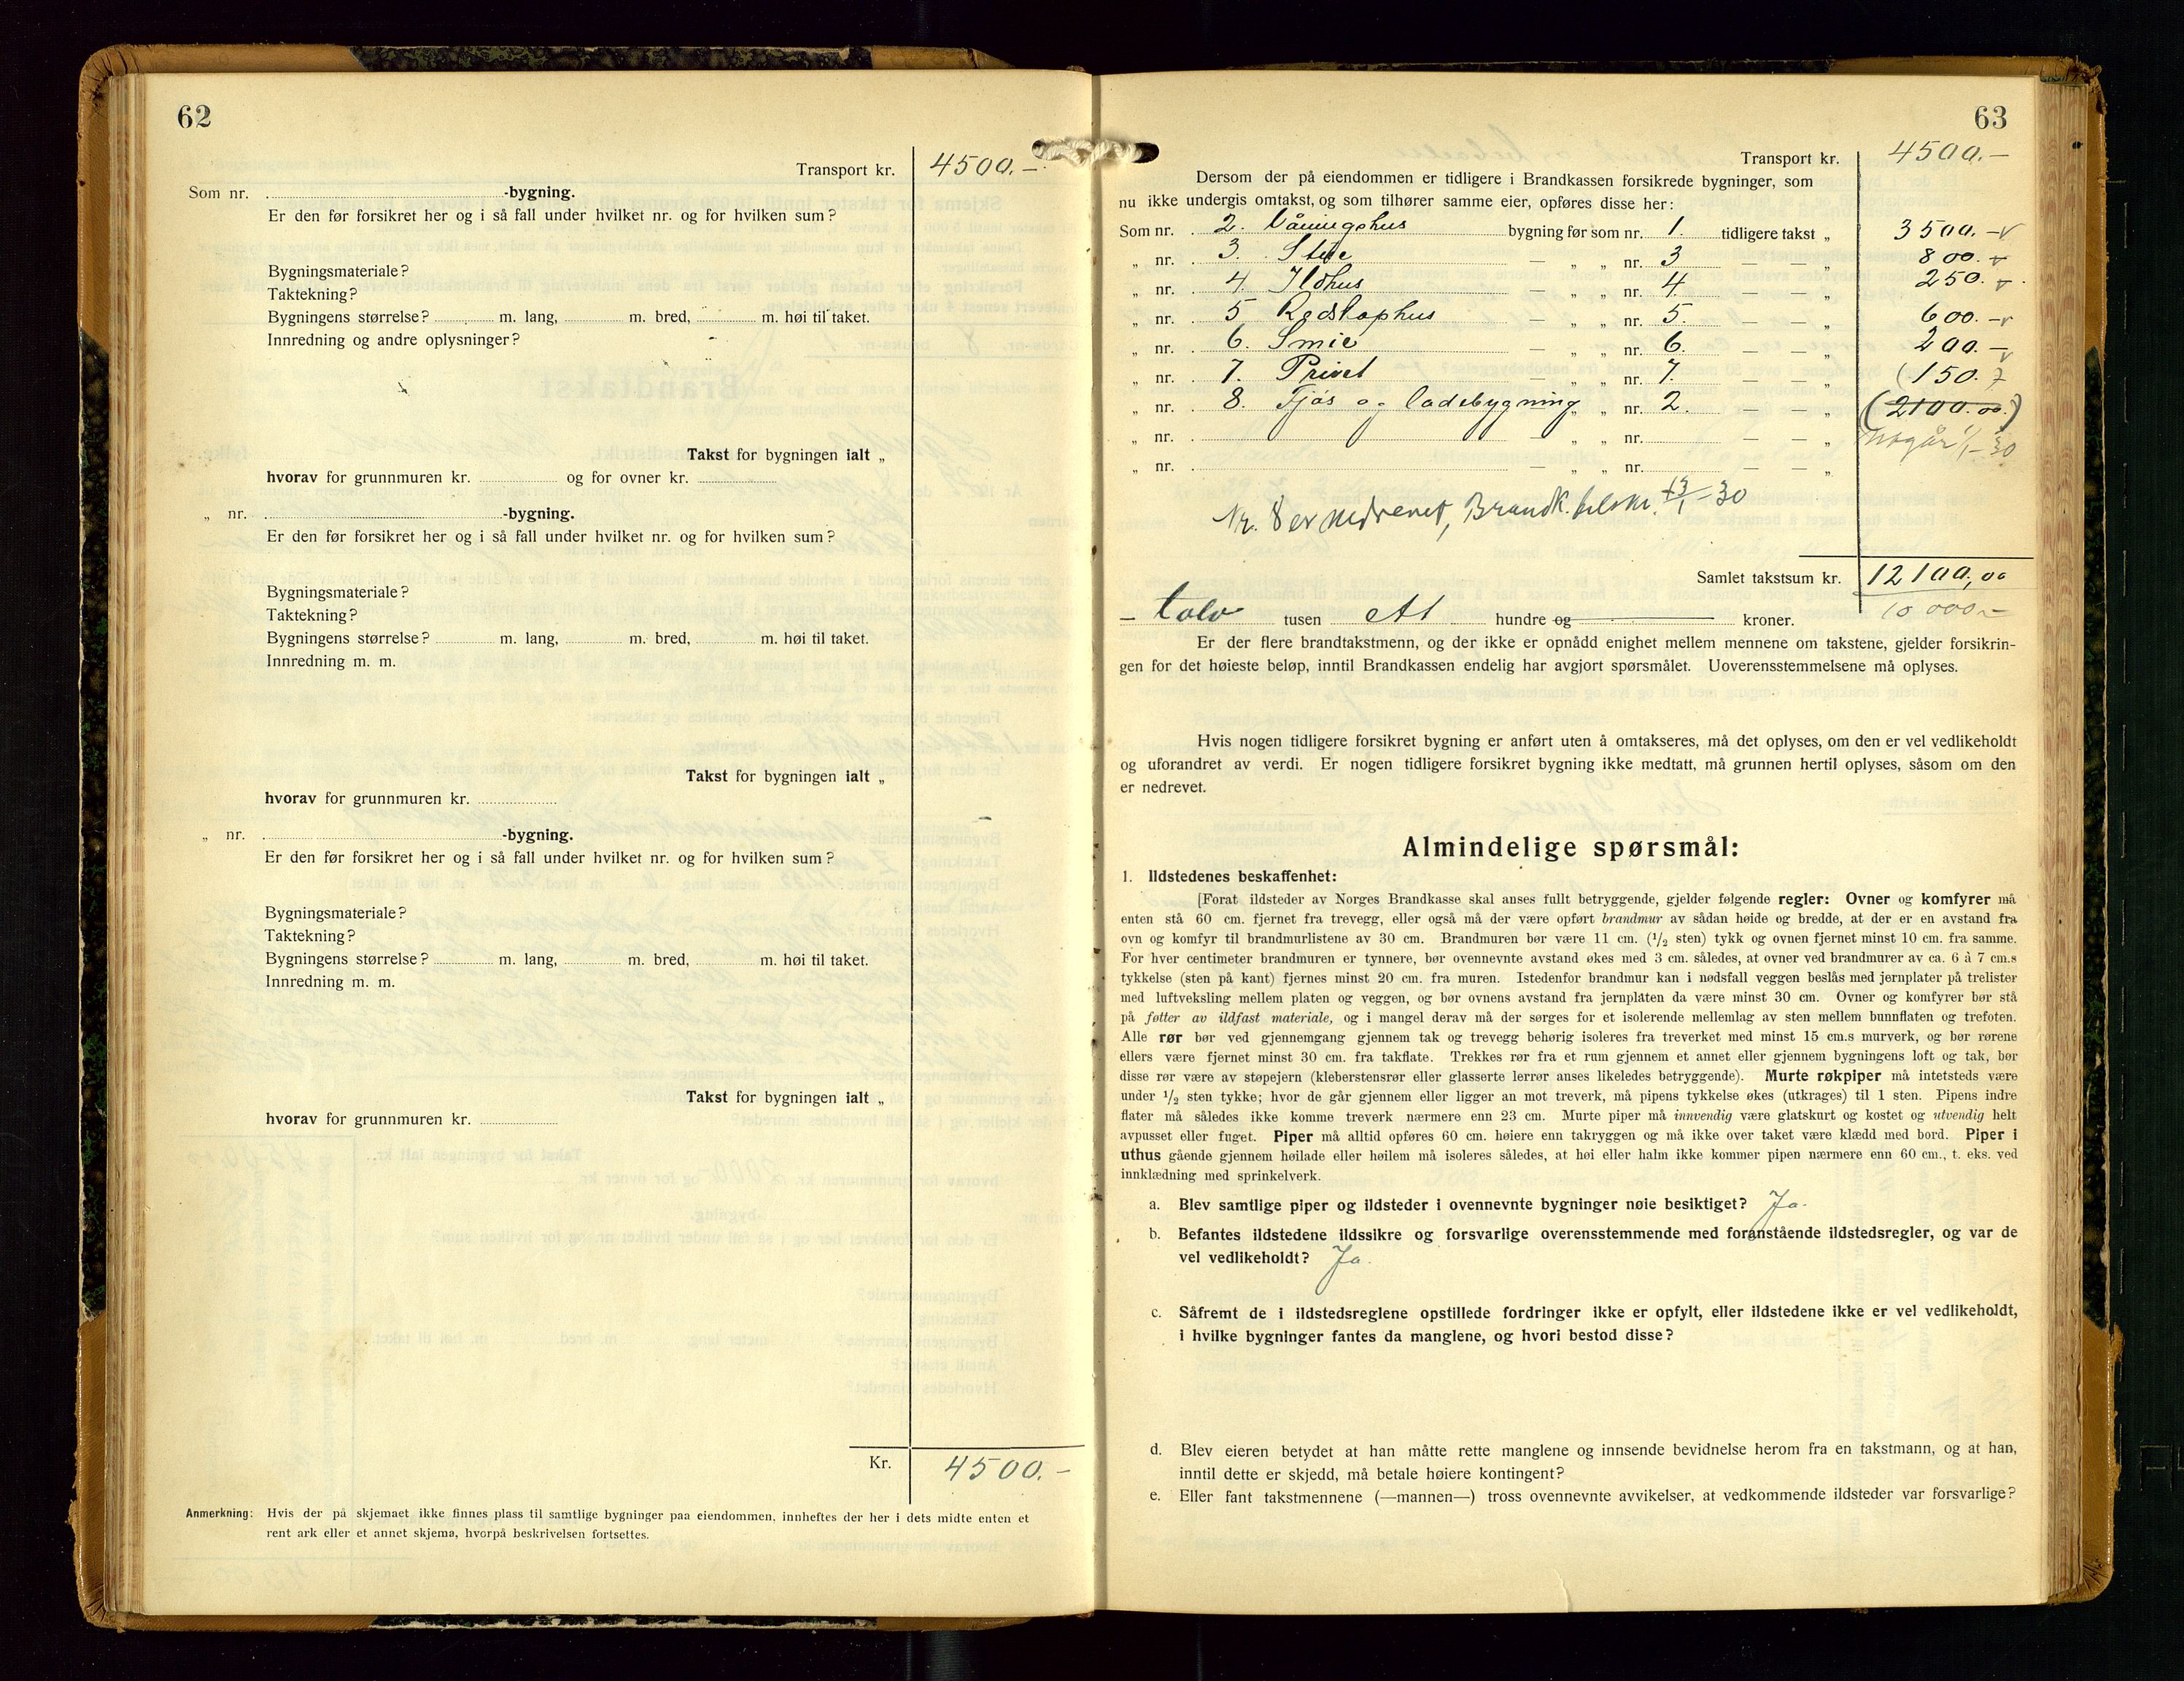 62
Transport kr. 4500.—
Som nr. -bygning.
Er den før forsikret her og i så fall under hvilket nr. og for hvilken sum?
Bygningsmateriale?
Taktekning?
Bygningens størrelse? m. lang, m. bred, m. høi til taket.
Innredning og andre oplysninger?
Takst for bygningen ialt „
hvorav for grunnmuren kr. og for ovner kr.
„ nr. -bygning.
Er den før forsikret her og i så fall under hvilket nr. og for hvilken sum?
Bygningsmateriale?
Taktekning?
Bygningens størrelse? m. lang, m. bred, m. høi til taket.
Innredning m. m.
Takst for bygningen ialt „
hvorav for grunnmuren kr.
„ nr. -bygning.
Er den før forsikret her og i så fall under hvilket nr. og for hvilken sum?
Bygningsmateriale?
Taktekning?
Bygningens størrelse? m. lang, m. bred, m. høi til taket.
Innredning m. m.
Takst for bygningen ialt „
hvorav for grunnmuren kr.
Kr. 4500.—
Anmerkning: Hvis der på skjemaet ikke finnes plass til samtlige bygninger paa eiendommen, innheftes der her i dets midte enten et
rent ark eller et annet skjema, hvorpå beskrivelsen fortsettes.
63
Transport kr. 4500.—
Dersom der på eiendommen er tidligere i Brandkassen forsikrede bygninger, som
nu ikke undergis omtakst, og som tilhører samme eier, opføres disse her:
Som nr. 2. Våningshus bygning før som nr. 1. tidligere takst „ 3500.—
„ nr. 3. Stue — „ „ nr. 3 — — „ 800.—
„ nr. 4. Ildhus — „ „ nr. 4. — — „ 250.
„ nr. 5 Redskaphus — „ „ nr. 5. — — „ 600.—
„ nr. 6. Smie — „ „ nr. 6. — — „ 200.—
„ nr. 7. Privet — „ „ nr. 7. — — „ (150.)
„ nr. 8. Fjøs og ladebygning „ „ nr. 2. — — „ (2100.00)
„ nr. — „ „ nr. — — „ Utgår 1/1–30
„ nr. — „ „ nr. — — „
Nr. 8 er nedrevet, Brandk. 13/1–30
Samlet takstsum kr. 12100,00
10000—
— tolv tusen et hundre og kroner.
Er der flere brandtakstmenn, og der ikke er opnådd enighet mellem mennene om takstene, gjelder forsikrin-
gen for det høieste beløp, inntil Brandkassen endelig har avgjort spørsmålet. Uoverensstemmelsene må oplyses.
Hvis nogen tidligere forsikret bygning er anført uten å omtakseres, må det oplyses, om den er vel vedlikeholdt
og uforandret av verdi. Er nogen tidligere forsikret bygning ikke medtatt, må grunnen hertil oplyses, såsom om den
er nedrevet.
Almindelige spørsmål:
1. Ildstedenes beskaffenhet:
[Forat ildsteder av Norges Brandkasse skal anses fullt betryggende, gjelder følgende regler: Ovner og komfyrer må
enten stå 60 cm. fjernet fra trevegg, eller også må der være opført brandmur av sådan høide og bredde, at der er en avstand fra
ovn og komfyr til brandmurlistene av 30 cm. Brandmuren bør være 11 cm. (1/2 sten) tykk og ovnen fjernet minst 10 cm. fra samme.
For hver centimeter brandmuren er tynnere, bør ovennevnte avstand økes med 3 cm. således, at ovner ved brandmurer av ca. 6 à 7 cm.s
tykkelse (sten på kant) fjernes minst 20 cm. fra muren. Istedenfor brandmur kan i nødsfall veggen beslås med jernplater på trelister
med luftveksling mellem platen og veggen, og bør ovnens avstand fra jernplaten da være minst 30 cm. Ovner og komfyrer bør stå
på føtter av ildfast materiale, og i mangel derav må der sørges for et isolerende mellemlag av sten mellem bunnflaten og trefoten.
Alle rør bør ved gjennemgang gjennem tak og trevegg behørig isoleres fra treverket med minst 15 cm.s murverk, og bør rørene
ellers være fjernet minst 30 cm. fra takflate. Trekkes rør fra et rum gjennem et annet eller gjennem bygningens loft og tak, bør
disse rør være av støpejern (kleberstensrør eller glasserte lerrør anses likeledes betryggende). Murte røkpiper må intetsteds være
under 1/2 sten tykke; hvor de går gjennem eller ligger an mot treverk, må pipens tykkelse økes (utkrages) til 1 sten. Pipens indre
flater må således ikke komme treverk nærmere enn 23 cm. Murte piper må innvendig være glatskurt og kostet og utvendig helt
avpusset eller fuget. Piper må alltid opføres 60 cm. høiere enn takryggen og må ikke over taket være klædd med bord. Piper i
uthus gående gjennem høilade eller høilem må isoleres således, at høi eller halm ikke kommer pipen nærmere enn 60 cm., t. eks. ved
innklædning med sprinkelverk.
a. Blev samtlige piper og ildsteder i ovennevnte bygninger nøie besiktiget? Ja.
b. Befantes ildstedene ildssikre og forsvarlige overensstemmende med foranstående ildstedsregler, og var de
vel vedlikeholdt? Ja.
c. Såfremt de i ildstedsreglene opstillede fordringer ikke er opfylt, eller ildstedene ikke er vel vedlikeholdt,
i hvilke bygninger fantes da manglene, og hvori bestod disse?
d. Blev eieren betydet at han måtte rette manglene og innsende bevidnelse herom fra en takstmann, og at han,
inntil dette er skjedd, må betale høiere kontingent?
e. Eller fant takstmennene (—mannen—) tross ovennevnte avvikelser, at vedkommende ildsteder var forsvarlige?